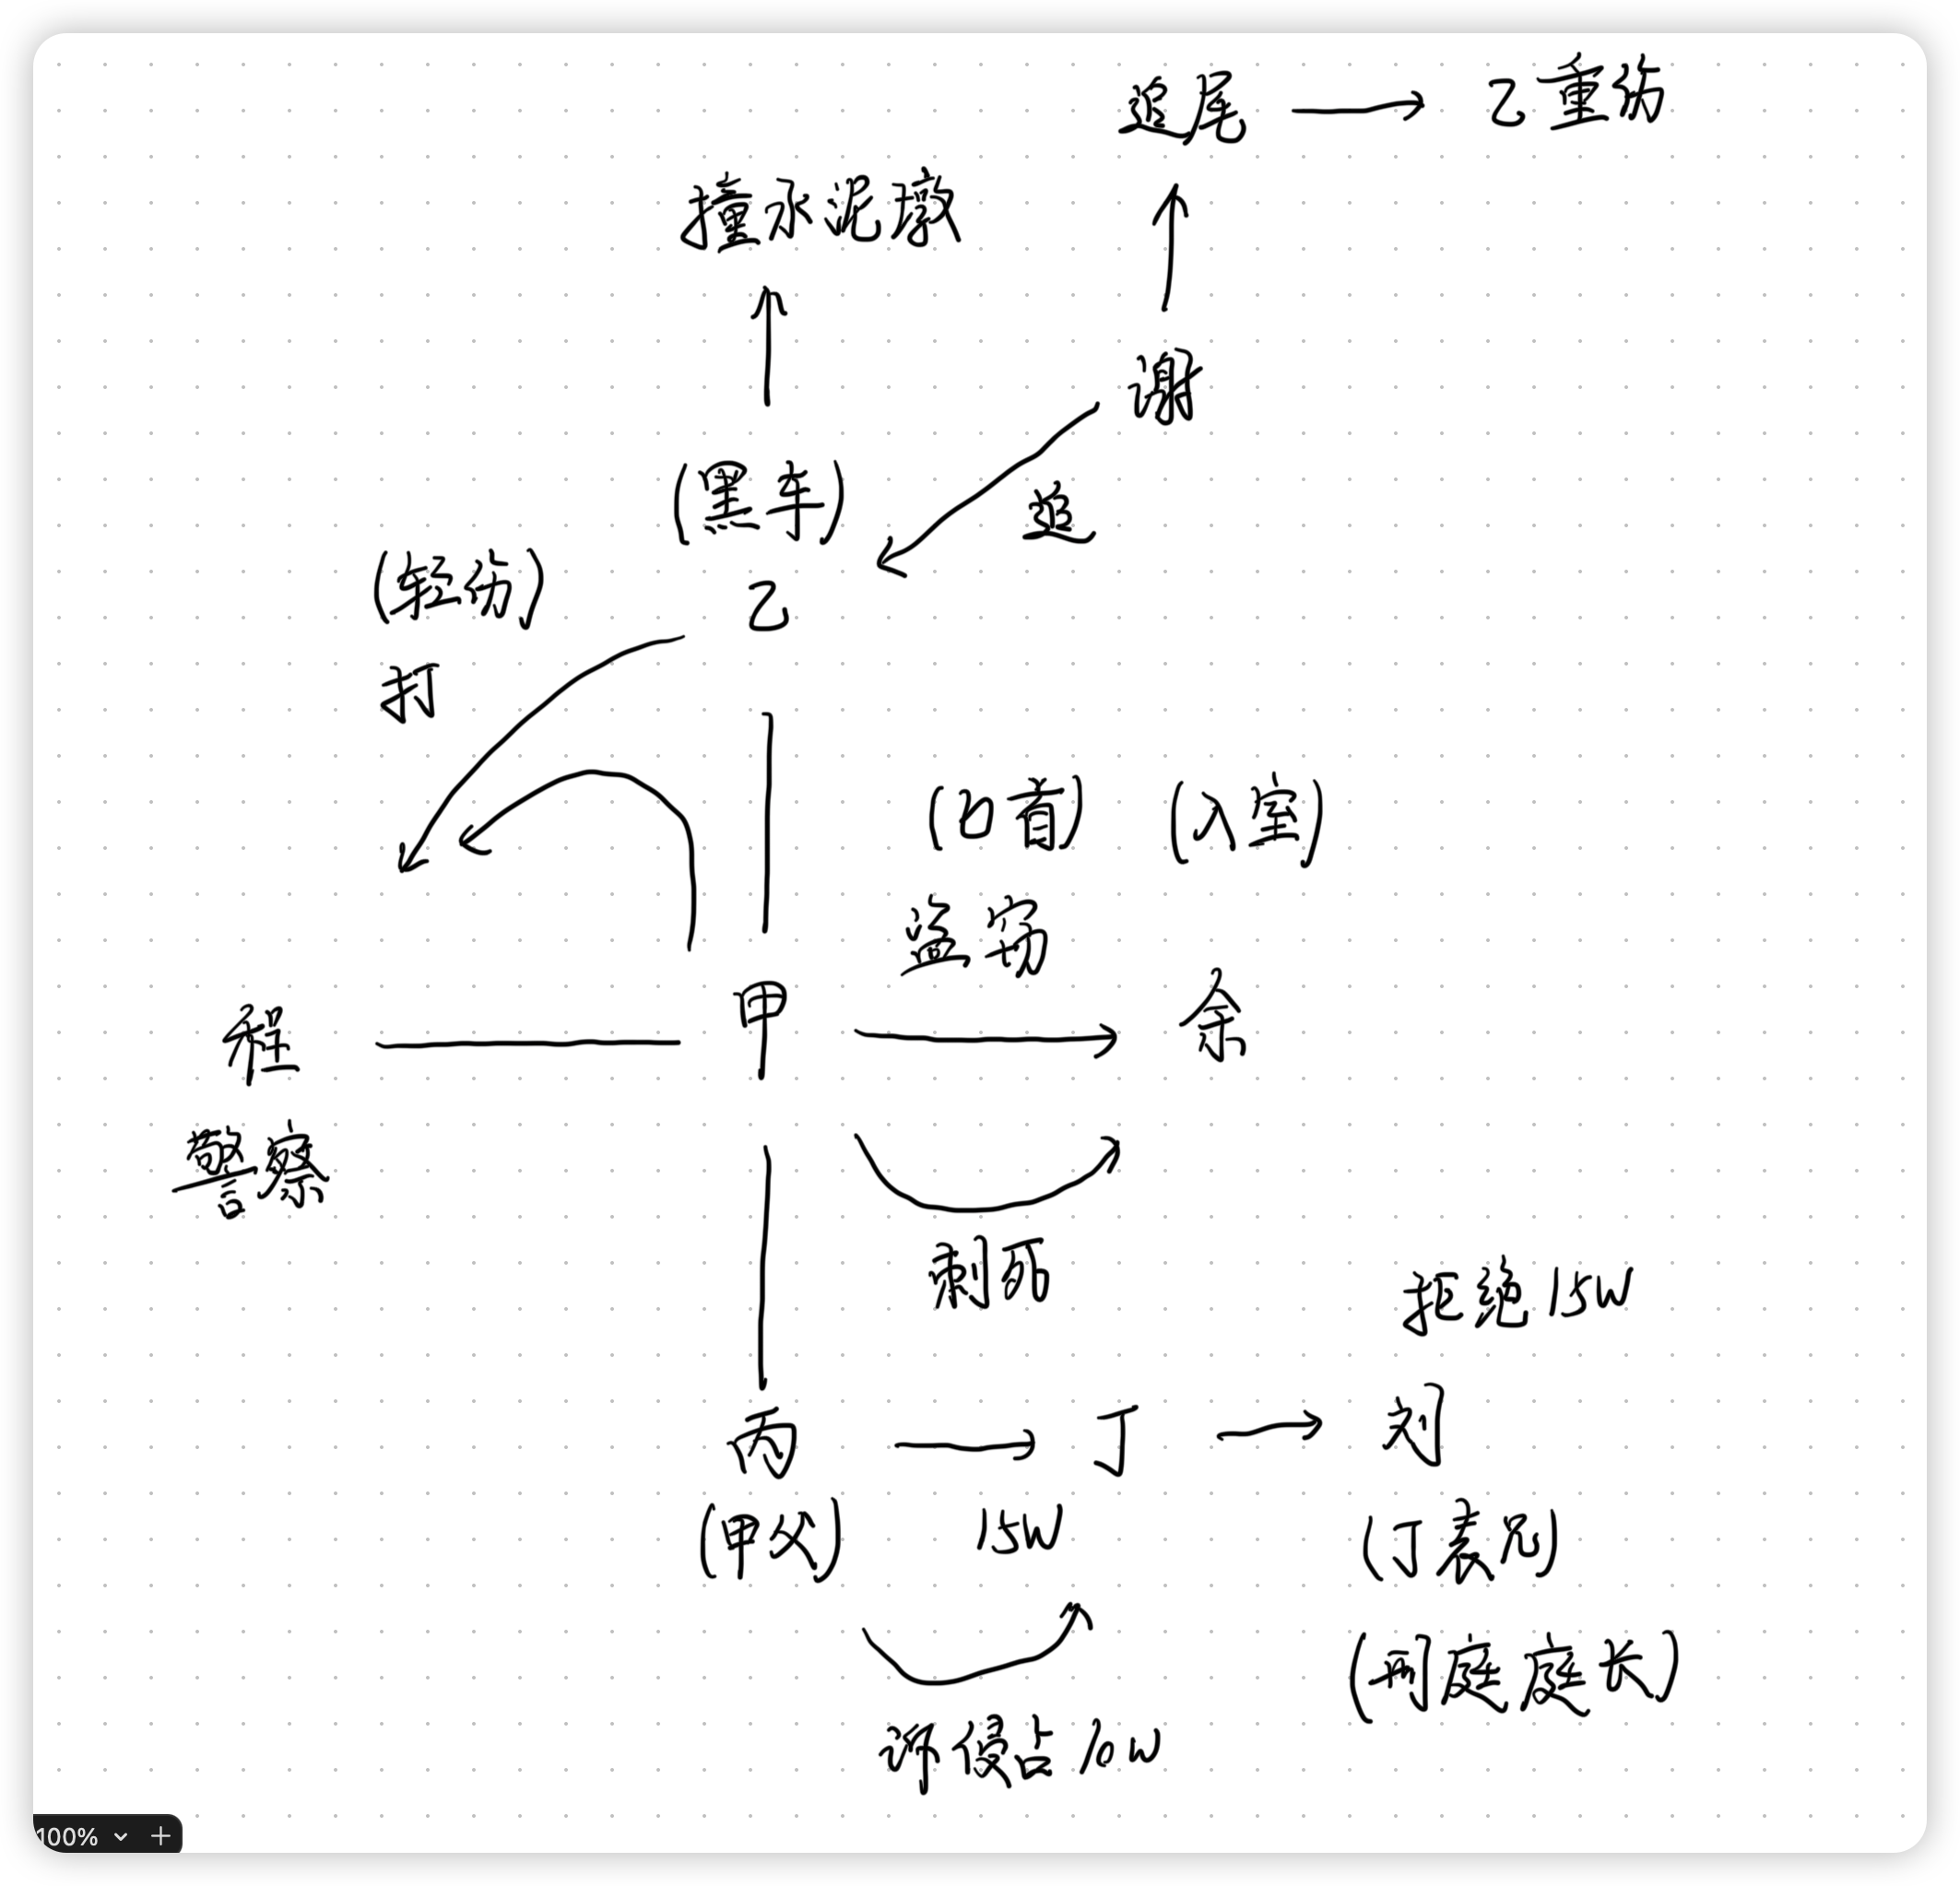 追尾 乙重伤
撞水泥墩
谢
(黑车)
追
(轻伤)
乙
打
(匕首) (入室)
盗窃
甲
程 余
警察
刺死
拒绝15W
丙 丁 刘
(甲父) 15W (丁表兄)
(刑庭庭长)
诉侵占10W
100%